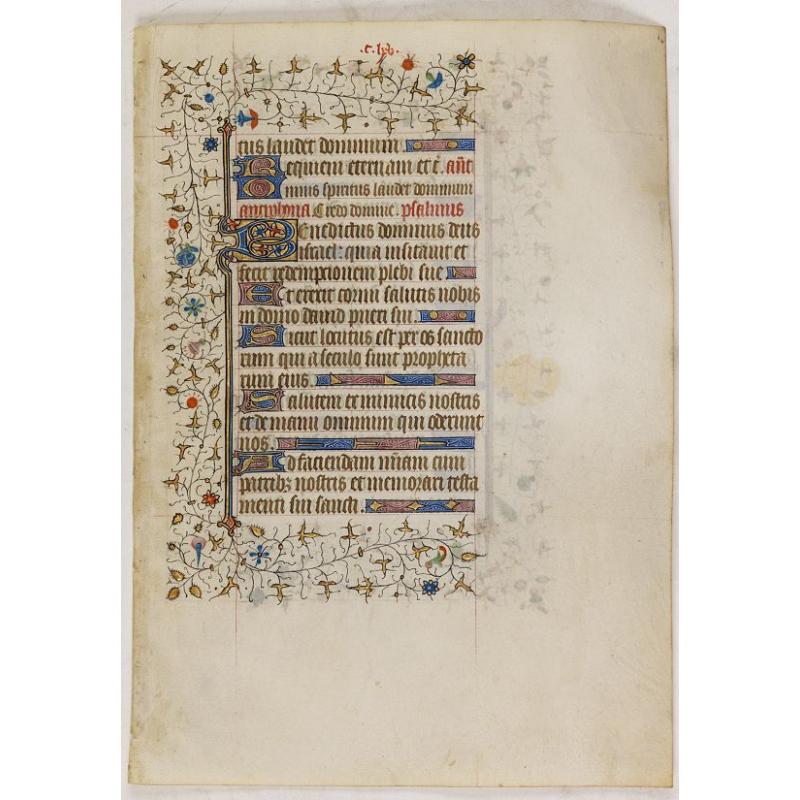 .c. lxv.
tus laudet dominum
Requiem eternam et c. añt
Omnis spiritus laudet dominum
antiphona Credo domine. psalmus
Benedictus dominus deus
israel: quia visitavit et
fecit redemptionem plebi sue
Et erexit cornu salutis nobis
in domo david pueri sui.
Sicut locutus est per os sancto
rum qui a seculo sunt propheta
rum eius.
Salutem ex inimicis nostris
et de manu omnium qui oderunt
nos.
Ad faciendam mĩam cum
patribꝫ nostris et memorari testa
menti sui sancti.